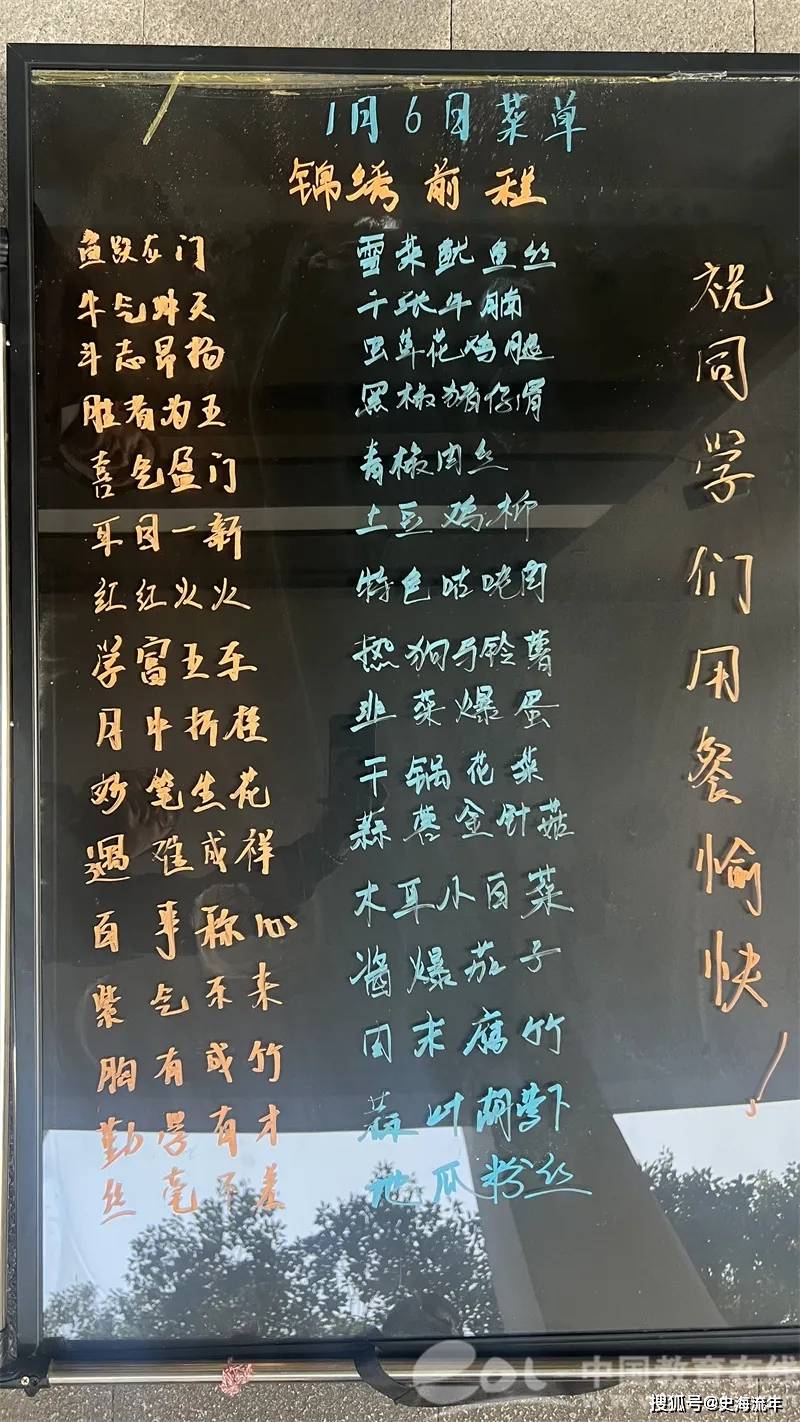 1月6日菜单
锦绣前程
鱼跃龙门 雪菜鱿鱼丝
牛气冲天 千张牛腩
斗志昂扬 虫草花鸡腿
胜者为王 黑椒猪仔骨
喜气盈门 青椒肉丝
耳目一新 土豆鸡柳
红红火火 特色咕咾肉
学富五车 热狗马铃薯
月中折桂 韭菜爆蛋
妙笔生花 干锅花菜
遇难成祥 蒜蓉金针菇
百事称心 木耳小白菜
紫气东来 酱爆茄子
胸有成竹 肉末腐竹
勤学有才 蒜叶胡萝卜
丝毫不差 地瓜粉丝
祝同学们用餐愉快!
eol 中国教育在线
搜狐号@史海流年